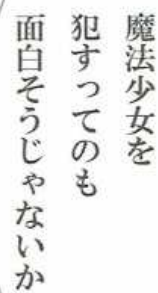 魔法少女を
犯すってのも
面白そうじゃないか